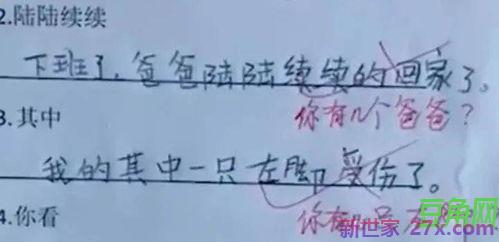 2.陆陆续续
下班了，爸爸陆陆续续的回家了。
你有几个爸爸？
3.其中
我的其中一只左脚受伤了。
4.你看
你有几只左脚
豆角网
新世家 27x.com